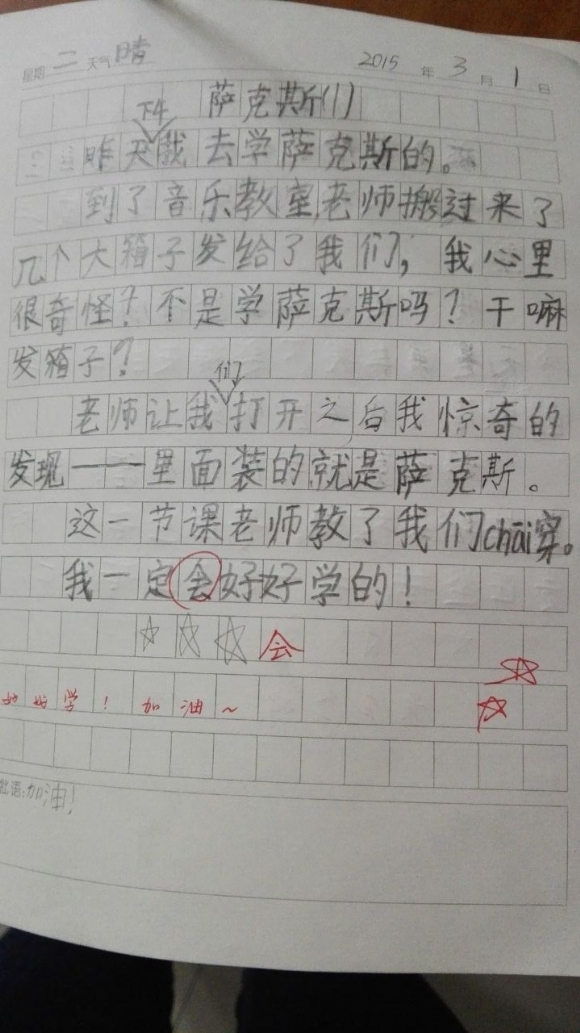 星期 二 天气 晴 2015 年 3 月 1 日
萨克斯(1)
下午
昨天我去学萨克斯的。
到了音乐教室老师搬过来了
几个大箱子发给了我们，我心里
很奇怪？不是学萨克斯吗？干嘛
发箱子？
们
老师让我打开之后我惊奇的
发现——里面装的就是萨克斯。
这一节课老师教了我们chāi穿。
我一定会好好学的！
会
好好学！加油~
批语：加油！